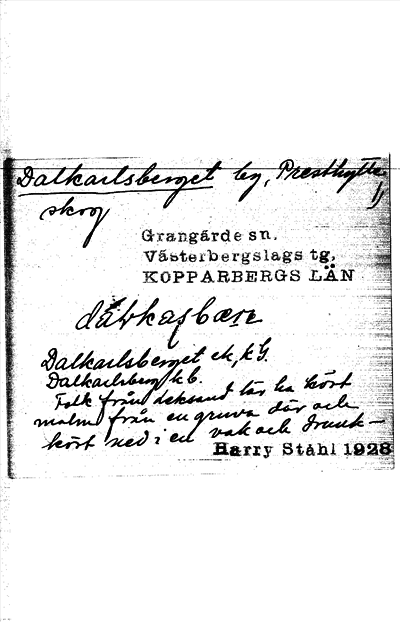 Dalkarlsberget by, Presthytte
skog 1)
Grangärde sn,
Västerbergslags tg,
KOPPARBERGS LÄN
Dalkarlsberget ek, kG.
Dalkarlsberg kb.
Folk från Leksand lär ha kört
malm från en gruva där och
kört ned i en vak och drunk-
Harry Ståhl 1928